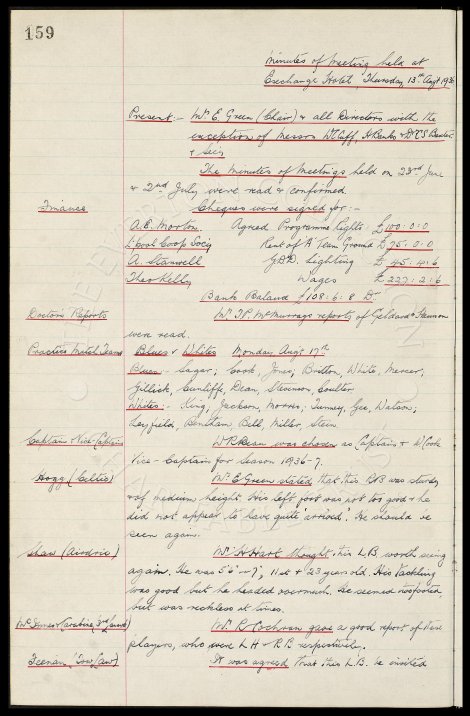 159
Minutes of Meeting held at
Exchange Hotel, Thursday, 13th Augt 1936
Present:- Mr. E. Green (Chair) & all Directors with the
exception of Messrs W. C. Cuff, H. Banks & Dr C. S. Baxter
& Secy.
The Minutes of Meetings held on 23rd June
& 2nd July were read & confirmed.
Finance Cheques were signed for:-
A. E. Morton. Agreed Programme Rights £100:0:0
L'pool Coop Socy Rent of A Team Ground £75:0:0
A. Stanwell G.D. Lighting £45:4:6
Theo Kelly Wages £227:2:6
Bank Balance £108:6:8 Dr.
Doctors Reports Mr. J. P. McMurray's reports of Geldard & Stevenson
were read.
Practice Match Teams Blues v Whites Monday Augt 17th
Blues:- Sagar; Cook, Jones; Britton, White, Mercer;
Gillick, Cunliffe, Dean, Stevenson, Coulter
Whites:- King, Jackson, Morris; Tunney, Gee, Watson;
Leyfield, Bentham, Bell, Miller, Stein
Captain & Vice-Captain W. R. Dean was chosen as Captain & W. Cook
Vice-Captain for Season 1936-7.
Hogg (Celtic) Mr. E. Green stated that this R.B was sturdy
& of medium height. His left foot was not too good & he
did not appear to have quite 'arrived'. He should be
seen again.
Shaw (Airdrie) Mr. H. Hart thought this L.B worth seeing
again. He was 5'6"-7", 11st & 23 years old. His tackling
was good but he headed overmuch. He seemed
but was reckless at times.
Mr. R. Cochran gave a good report of these
players, who were L.H & R.B respectively.
Feenan (Tow Law) It was agreed that this L.B. be invited